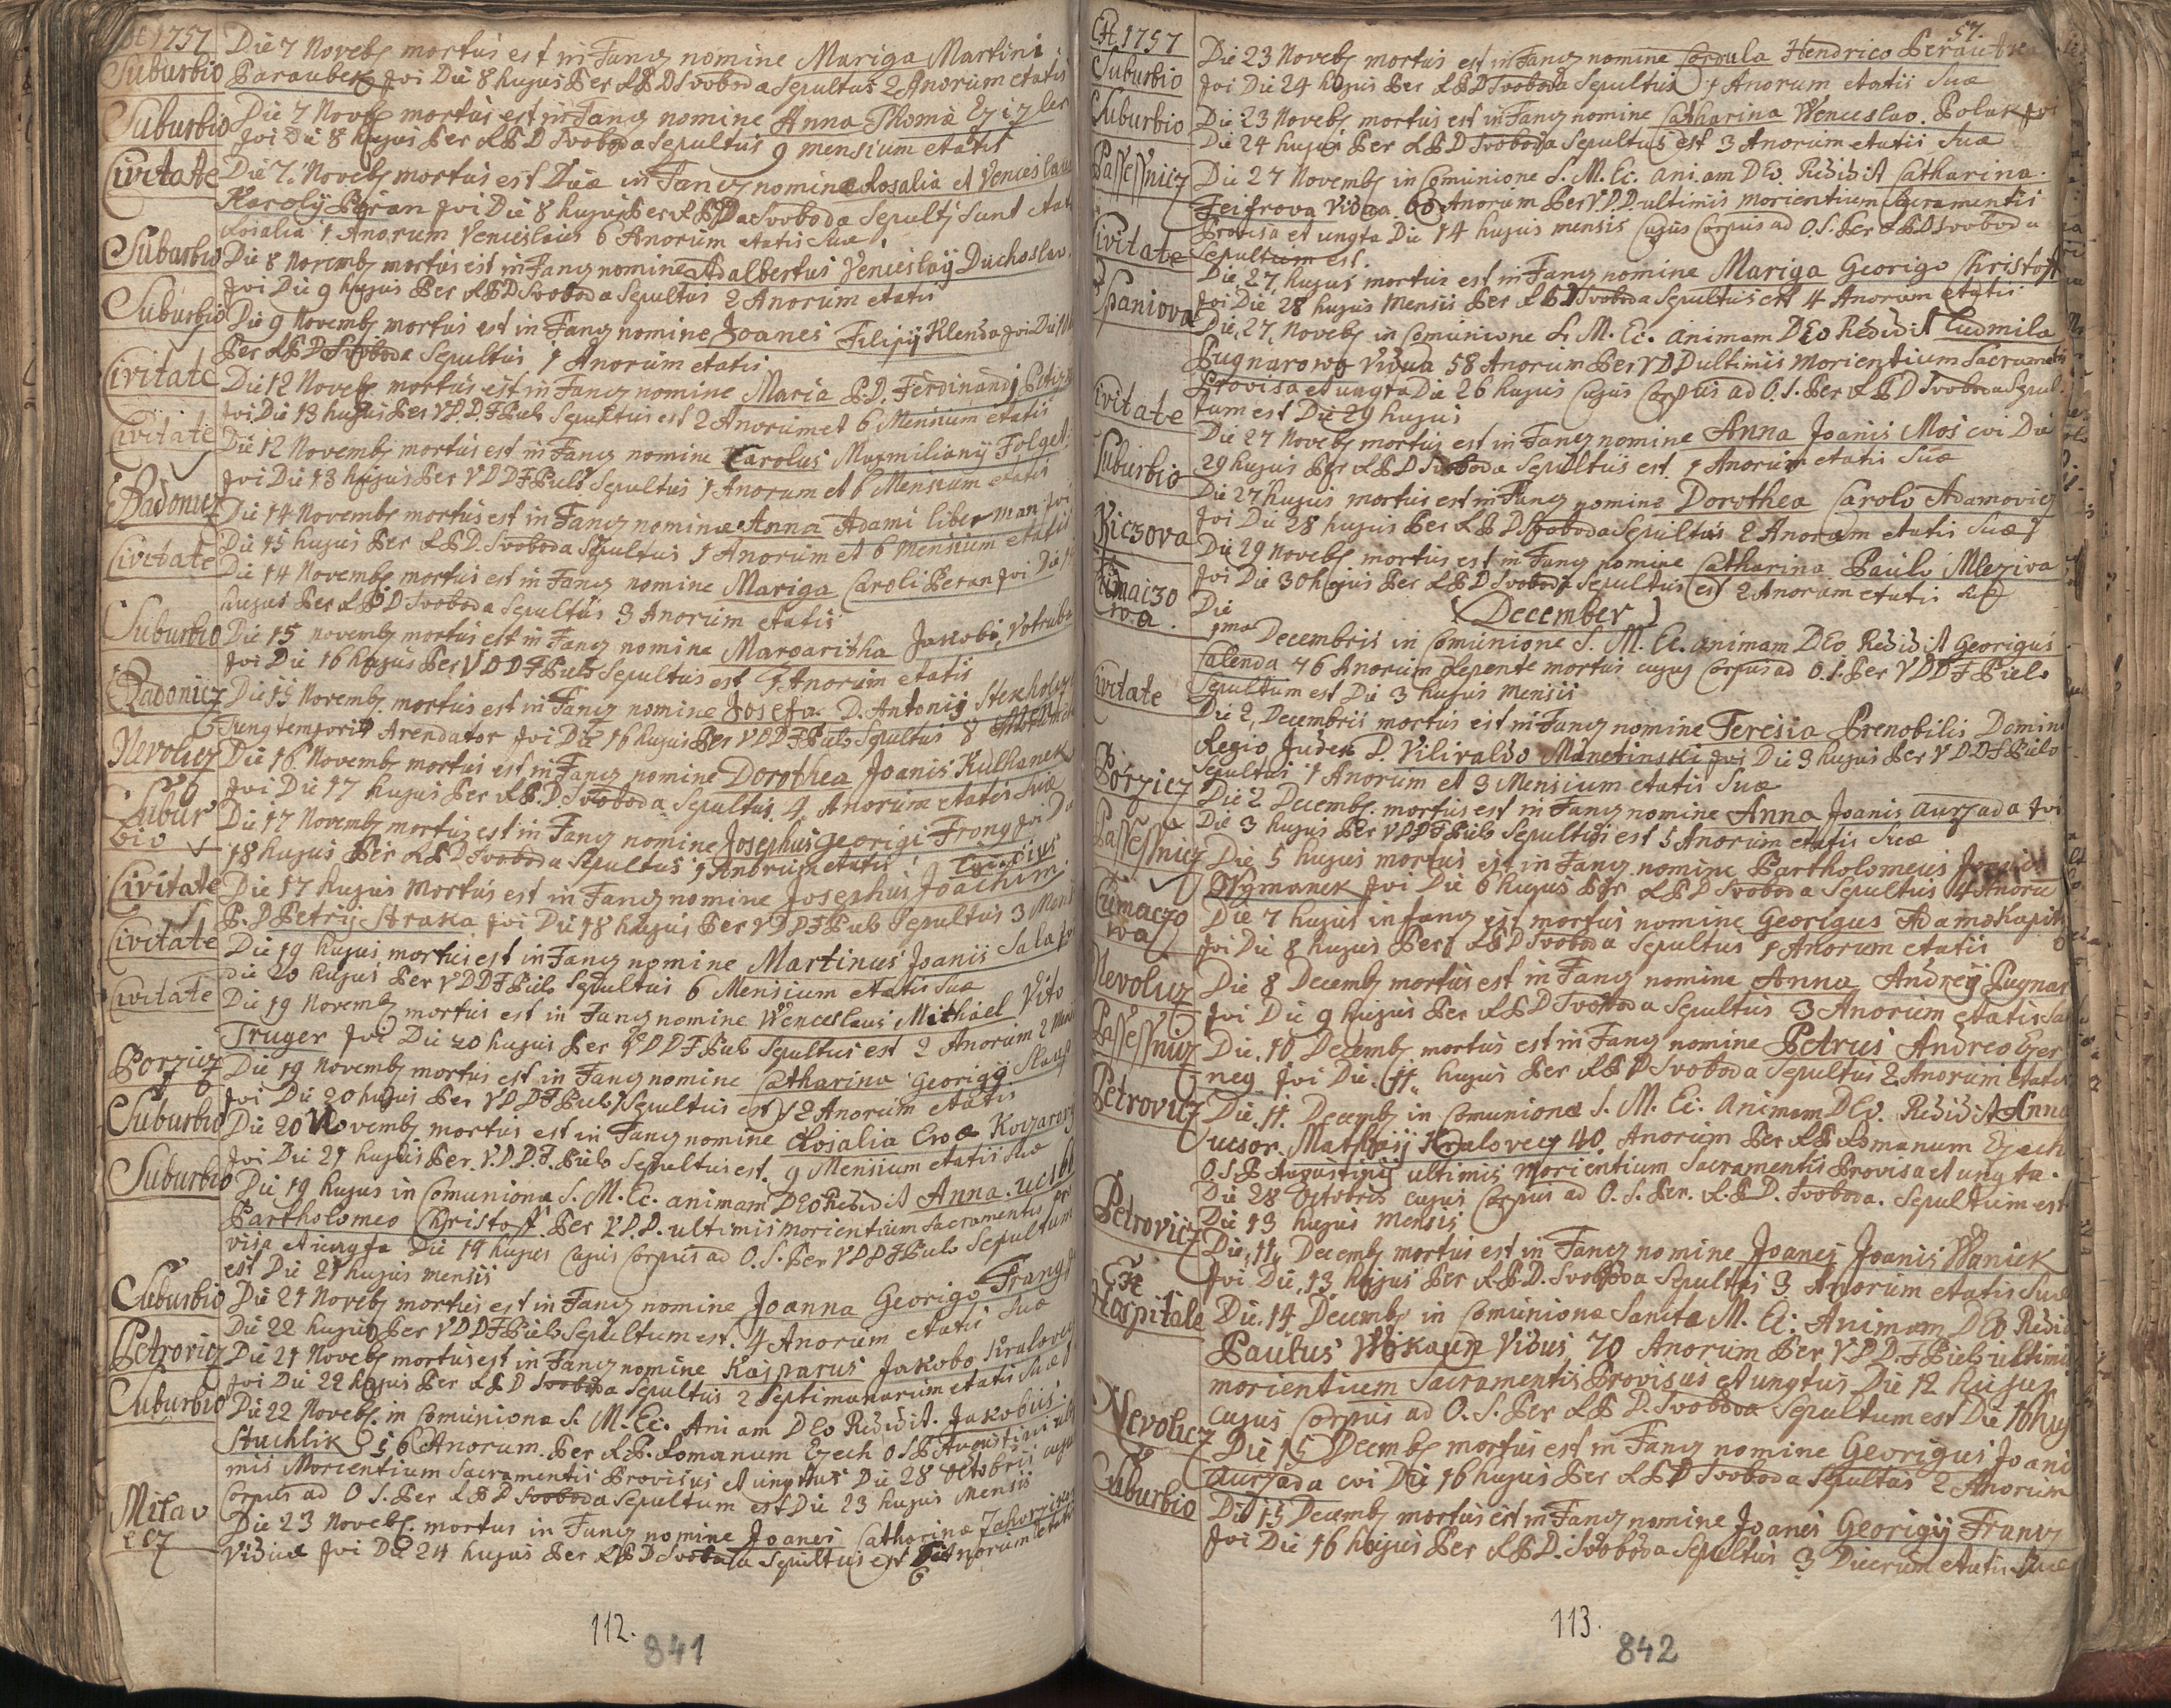 1757
Suburbio Die 7 Noveb mortus est in Fanc nomine Mariga Martini
Paraubek Jvi Die 8 hujus Per ARD Svoboda Sepultus 2 Anorum etatis
Suburbio Die 7 Noveb mortus est in Fanc nomine Anna Thomæ
Jvi Die 8 hujus Per ARD Svoboda Sepultus 9 mensium etatis
Civitate Die 7. Noveb mortus est Duæ in Fanc nomine Rosalia et Venceslaus
Karolij Peran Jvi Die 8 hujus Per ARDa Svoboda Sepultj Sunt
Rosalia 1 Anorum Venceslaus 6 Anorum etatis Suæ
Suburbio Die 8 Novemb mortus est in Fanc nomine Adalbertus Venceslaij Duchoslav
Jvi Die 9 hujus Per ARD Svoboda Sepultus 2 Anorum etatis
Suburbio Die 9 Novemb mortus est in Fanc nomine Joanes Filipij Klenda Jvi Die
Per ARD Svoboda Sepultus 1 Anorum etatis
Civitate Die 12 Noveb mortus est in Fanc nomine Maria P.D. Ferdinandj
Jvi Die 13 hujus Per VDD F Piels Sepultus est 2 Anorum et 6 Mensium etatis
Civitate Die 12 Novemb mortus est in Fanc nomine Carolus Maxmilianij
Jvi Die 13 hujus Per VDDF Piels Sepultus 1 Anorum et 6 Mensium etatis
Radonicz Die 14 Novemb mortus est in Fanc nomine Anna Adami liberman Jvi
Die 15 hujus Per ARD. Svoboda Sepultus 1 Anorum et 6 mensium etatis
Civitate Die 14 Novemb mortus est in Fanc nomine Mariga Caroli Peran Jvi Die
hujus Per ARD Svoboda Sepultus 3 Anorum etatis
Suburbio Die 15 novemb mortus est in Fanc nomine Margaritha Jakobi Votruba
Jvi Die 16 hujus Per VDDF Piels Sepultus est 7 Anorum etatis
Radonicz Die 15 Novemb mortus est in Fanc nomine Josefa D. Antonij
Tunc temporis Arendator Jvi Die 16 hujus Per VDDF Piels Sepultus 8
Nevolicz Die 16 Novemb mortus est in Fanc nomine Dorothea Joanis Kulhanek
Jvi Die 17 hujus Per AR.D Svoboda Sepultus 4 Anorum etatis Suæ
Suburbio Die 17 Novemb mortus est in Fanc nomine Josephus Georigi Franc Jvi Die
18 hujus Per ARD Svoboda Sepultus 1 Anorum etatis
Civitate Die 17 hujus mortus est in Fanc nomine Josephus Joachim
P.D Petrij Straka Jvi Die 18 hujus Per VDDF Piels Sepultus 3
Civitate Die 19 hujus mortus est in Fanc nomine Martinus Joanis Sala
die 20 hujus Per VDDF Piels Sepultus 6 Mensium etatis Suæ
Civitate Die 19 Novemb mortus est in Fanc nomine Wenceslaus Mithael Vito
Truger Jvi Die 20 hujus Per VDDF Piels Sepultus est 2 Anorum 2
Porzicz Die 19 Novemb mortus est in Fanc nomine Catharina Georigij
Jvi Die 20 hujus Per VDDF Piels Sepultus est 2 Anorum etatis
Suburbio Die 20 Novemb mortus est in Fanc nomine Rosalia Evæ
Jvi Die 21 hujus Per V.D.D.F. Piels Sepultus est. 9 Mensium etatis Suæ
Suburbio Die 19 hujus in Comuniona S. M. Ec. animam DEo Redidit Anna
Partholomeo Christoff Per V.D.D. ultimis morientium Sacramentis
visa et ungta Die 19 hujus Cujus Corpus ad O. S. Per VDDF Piels Sepultum
est Die 21 hujus mensis
Suburbio Die 21 Noveb mortus est in Fanc nomine Joanna Georigo
Die 22 hujus Per VDDF Piels Sepultum est. 4 Anorum etatis Suæ
Petrovicz Die 21 Noveb mortus est in Fanc nomine Kasparus Jakobo Kralovec
Jvi Die 22 hujus Per ARD Svoboda Sepultus 2 Septimanarum etatis Suæ
Suburbio Die 22 Noveb. in Comuniona S. M. Ec. Aniam DEo Redidit. Jakobus
Stuchlik 56 Anorum. Per AR. Romanum Czech OSP Augustini
mis Morientium Sacramentis Provisus et ungtus Die 28 Octobris
Corpus ad O S. Per ARD Svoboda Sepultum est Die 23 hujus Mensis
Milav Die 23 Noveb. mortus in Fanc nomine Joanes Catharinæ
Viduæ Jvi Die 24 hujus Per ARD Svoboda Sepultus est Anorum etatis
112.
841
1757
57.
Suburbio Die 23 Noveb mortus est in Fanc nomine Cordula Hendrico
Jvi Die 24 hujus Per ARD Svoboda Sepultus 1 Anorum etatis Suæ
Suburbio Die 23 Noveb mortus est in Fanc nomine Catharina Wenceslao Polak Jvi
Die 24 hujus Per ARD Svoboda Sepultus est 3 Anorum etatis Suæ
Passessnicz Die 27 Novemb in Comunione S. M. Ec. aniam DEo. Redidit Catharina
Feifrova Vidua 60 Anorum Per V.D.D. ultimis morientium Sacramentis
Provisa et ungta Die 14 hujus mensis Cujus Corpus ad O.S. Per ARD Svoboda
Sepultum est.
Civitate Die 27 hujus mortus est in Fanc nomine Mariga Georigo Christoff
Jvi Die 28 hujus Mensis Per ARD Svoboda Sepultus est 4 Anorum etatis
Spaniova Die, 27, Noveb in Comunione S. M. Ec. animam DEo Redidit Ludmila
Pugnarowa Vidua 58 Anorum Per VDD ultimis Morientium Sacramentis
Provisa et ungta Die 26 hujus Cujus Corpus ad O. S. Per ARD Svoboda Sepul
tum est Die 29 hujus
Civitate Die 27 Noveb mortus est in Fanc nomine Anna Joanis Mos cvi Die
29 hujus Per ARD Svoboda Sepultus est 1 Anorum etatis Suæ
Suburbio Die 27 hujus mortus est in Fanc nomine Dorothea Carolo Adamovicz
Jvi Die 28 hujus Per ARD Svoboda Sepultus 2 Anorum etatis Suæ
Kiczova Die 29 Noveb mortus est in Fanc nomine Catharina Paulo Mleziva
Jvi Die 30 hujus Per ARD Svoboda Sepultus est 2 Anorum etatis Suæ
December
Die 1ma Decembris in Comunione S. M. Ec. animam DEo Redidit Georigus
Calenda 76 Anorum Repente mortus cujus Corpus ad O. S. Per VDDF Piels
Sepultum est Die 3 hujus mensis
Civitate Die 2, Decembris mortus est in Fanc nomine Teresia Prenobilis Domini
Regio Judex D. Vilivaldo Manetinski Jvi Die 3 hujus Per VDDF Piels
Sepultus 1 Anorum et 3 Mensium etatis Suæ
Porzicz Die 2 Decemb. mortus est in Fanc nomine Anna Joanis Aurzada Jvi
Die 3 hujus Per VDDF Piels Sepultus est 5 Anorum etatis Suæ
Passessnicz Die 5 hujus mortus est in Fanc nomine Partholomeus Joanis
Wymanek Jvi Die 6 hujus Per ARD Svoboda Sepultus 14 Anoru
Die 7 hujus in fanc est mortus nomine Georigus Adamo
Jvi Die 8 hujus Per ARD Svoboda Sepultus 1 Anorum etatis
Nevolicz Die 8 Decemb mortus est in Fanc nomine Anna Andreij Pugnar
Jvi Die 9 hujus Per ARD Svoboda Sepultus 3 Anorum etatis
Passessnicz Die. 10 Decemb mortus est in Fanc nomine Petrus Andreo Czer
neg Jvi Die 11 hujus Per ARD Svoboda Sepultus 2 Anorum etatis
Petrovicz Die, 11. Decemb in Comuniona S. M. Ec. Animam DEo. Redidit Anna
ucsor. Mathaij Kralovecz 40. Anorum Per AR Romanum Czech
O.S.P Augustini ultimis morientium Sacramentis Provisa et ungta.
Die 28 Octobris cujus Corpus ad O. S. Per. A.R.D. Svoboda. Sepultum est
Die 13 hujus mensis
Petrovicz Die, 11, Decemb mortus est in Fanc nomine Joanes Joanis Waniek
Jvi Die, 13 hujus Per A.R.D. Svoboda Sepultus 3 Anorum etatis Suæ
Ex Hospitale Die. 14 Decemb in Comuniona Sancta M. Ec. Animam DEo
Paulus Wokaun Vidus 70 Anorum Per V.D.D.F Piels ultimis
morientium Sacramentis Provisus et ungtus Die 12 hujus
cujus Corpus ad O. S. Per ARD. Svoboda Sepultum est Die 16 huj
Nevolicz Die 15 Decemb mortus est in Fanc nomine Georigus Joani
Aurzada cvi Die 16 hujus Per ARD Svoboda Sepultus 2 Anorum
Suburbio Die 15 Decemb mortus est in Fanc nomine Joanes Georigij Franc
Jvi Die 16 hujus Per A.R.D. Svoboda Sepultus 3 Dierum etatis Suæ
113.
842